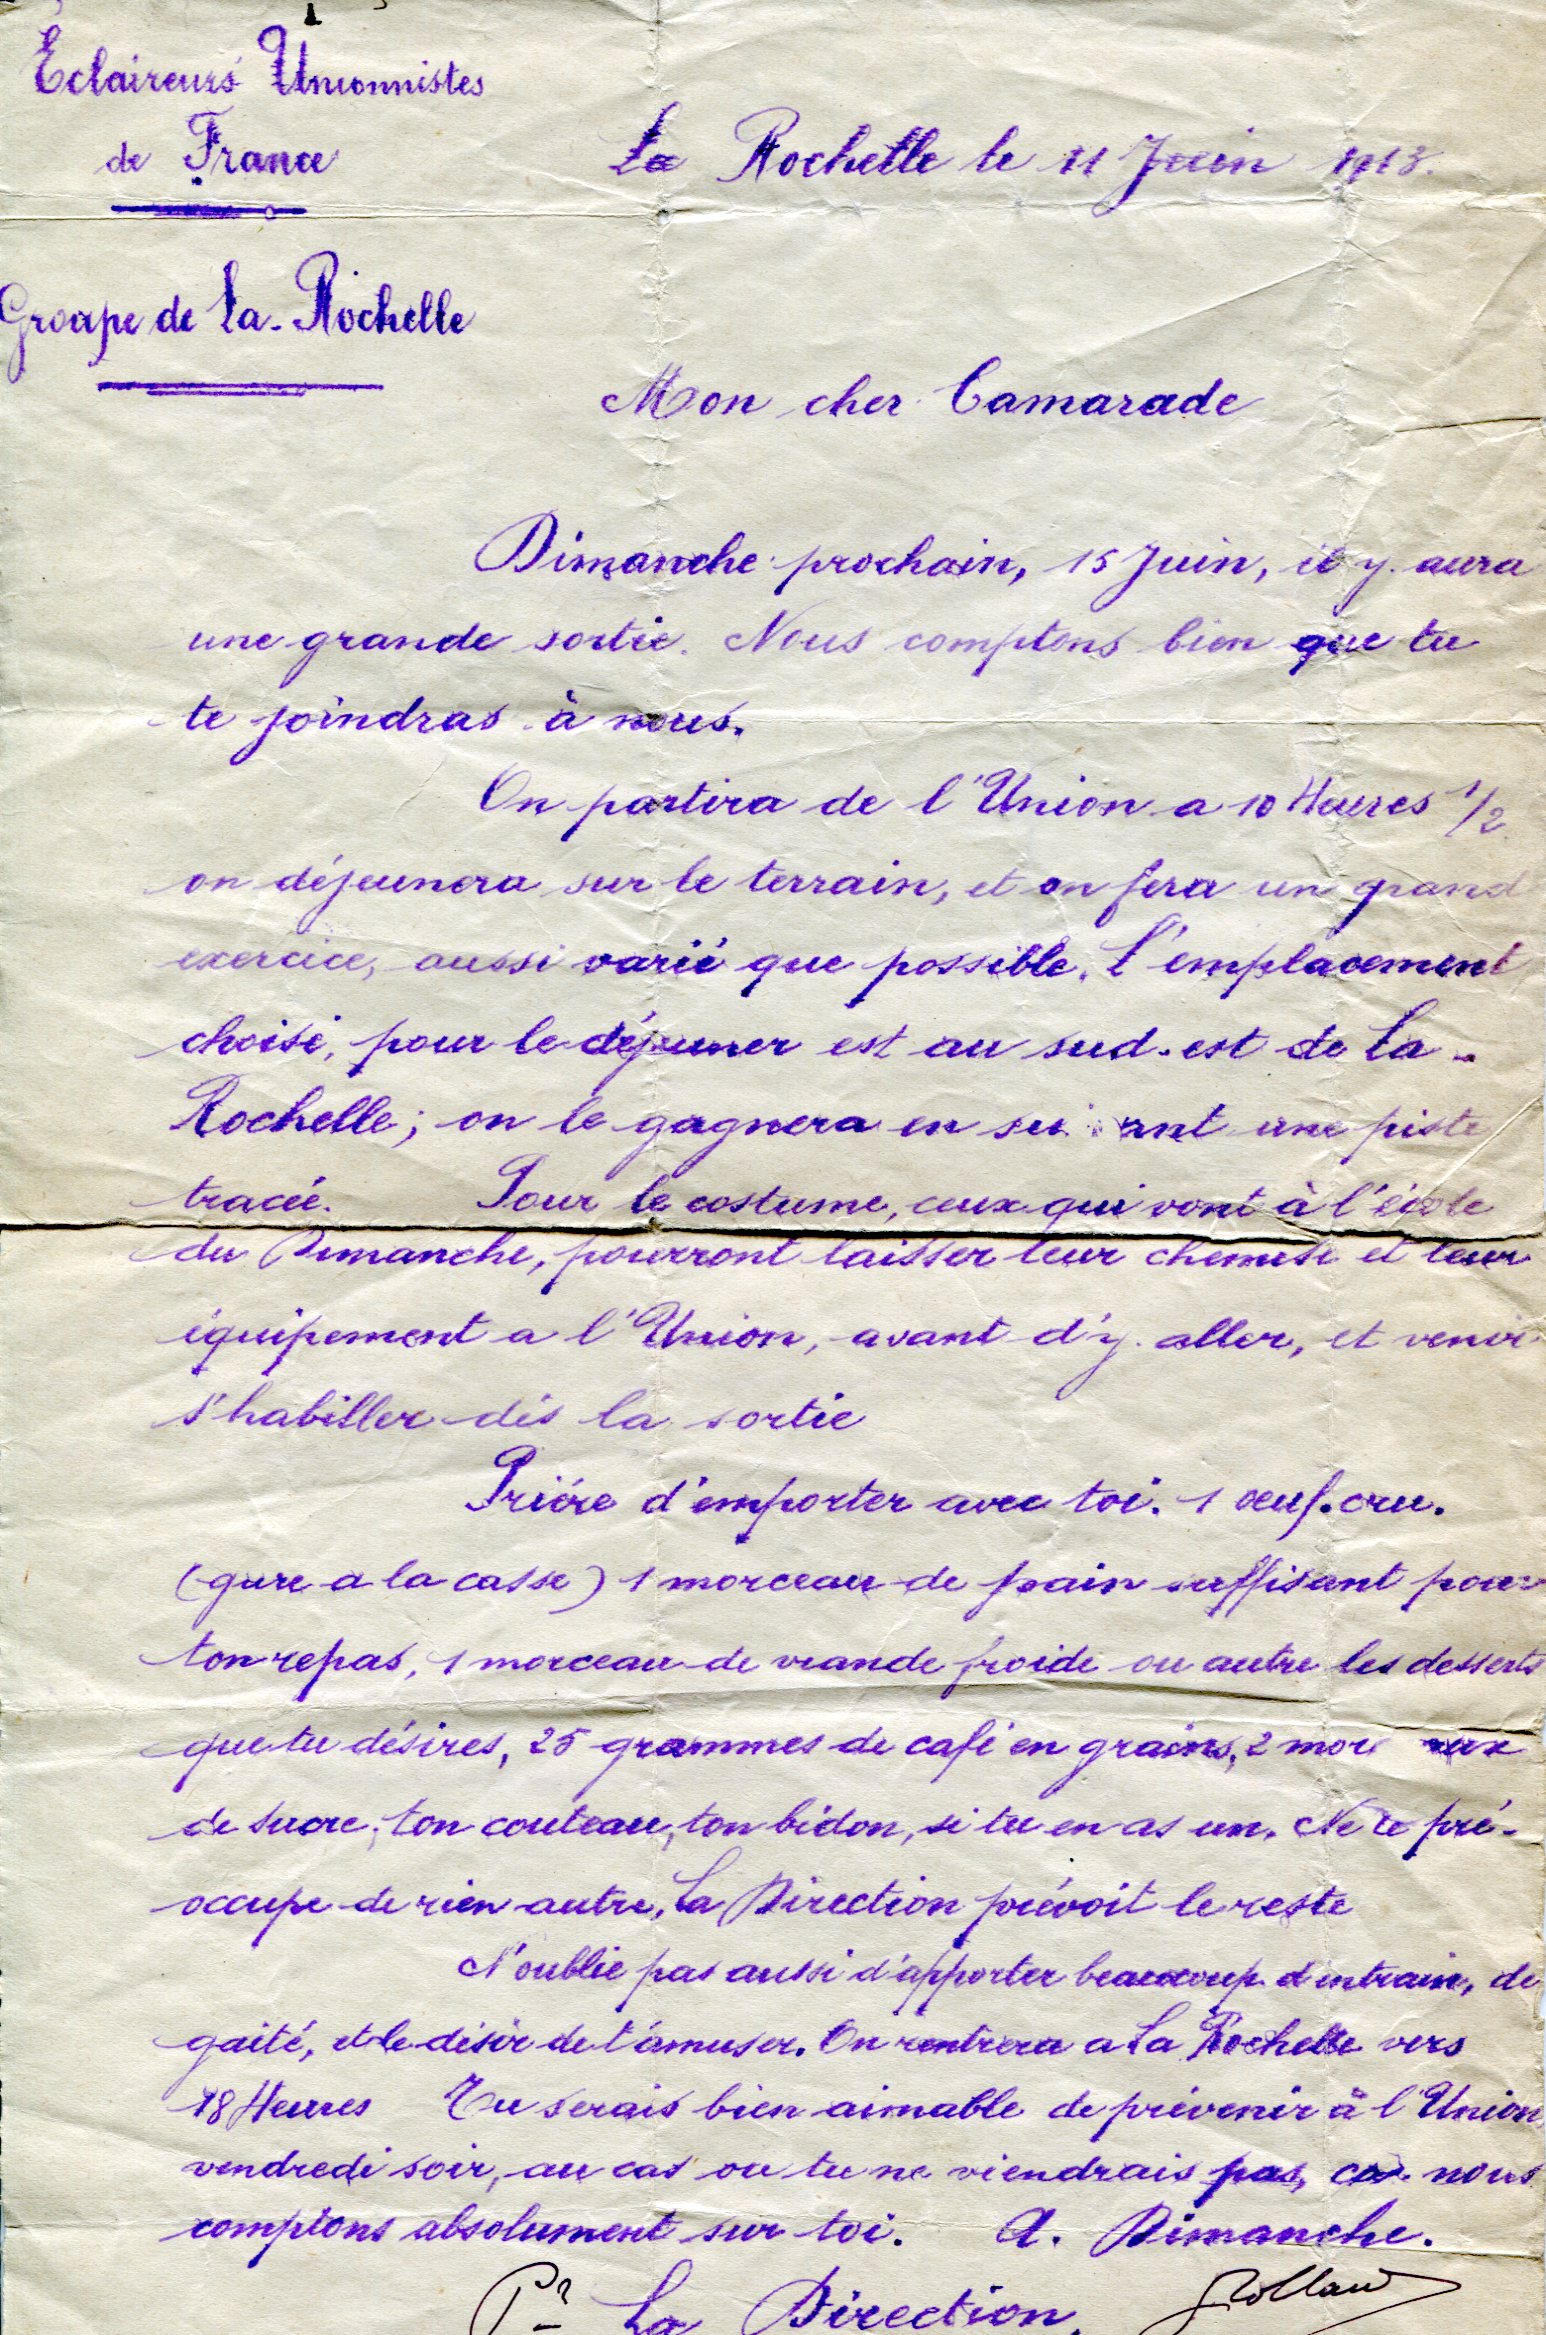 Eclaireurs Unionnistes
de France
La Rochelle le 11 Juin 1913.
Groupe de La-Rochelle
Mon cher Camarade
Dimanche prochain, 15 Juin, il y aura
une grande sortie. Nous comptons bien que tu
te joindras à nous.
On partira de l'Union a 10 Heures 1/2
on déjeunera sur le terrain, et on fera un grand
exercice, aussi varié que possible. L'emplacement
choisi, pour le déjeuner est au sud-est de La-
Rochelle; on le gagnera en suivant une piste
tracée. Pour le costume, ceux qui vont à l'école
du Dimanche, pourront laisser leur chemise et leur
équipement a l'Union, avant d'y aller, et venir
s'habiller dès la sortie
Prière d'emporter avec toi. 1 oeuf cru.
(gare a la casse) 1 morceau de pain suffisant pour
ton repas, 1 morceau de viande froide ou autre les desserts
que tu désires, 25 grammes de café en grains, 2 morceaux
de sucre, ton couteau, ton bidon, si tu en as un. Ne te pré-
occupe de rien autre, La Direction prévoit le reste
N'oublie pas aussi d'apporter beaucoup d'entrain, de
gaité, et le désir de t'amuser. On rentrera a La Rochelle vers
18 Heures Tu serais bien aimable de prévenir à l'Union
vendredi soir, au cas ou tu ne viendrais pas, car nous
comptons absolument sur toi. A. Dimanche.
Pr La Direction,